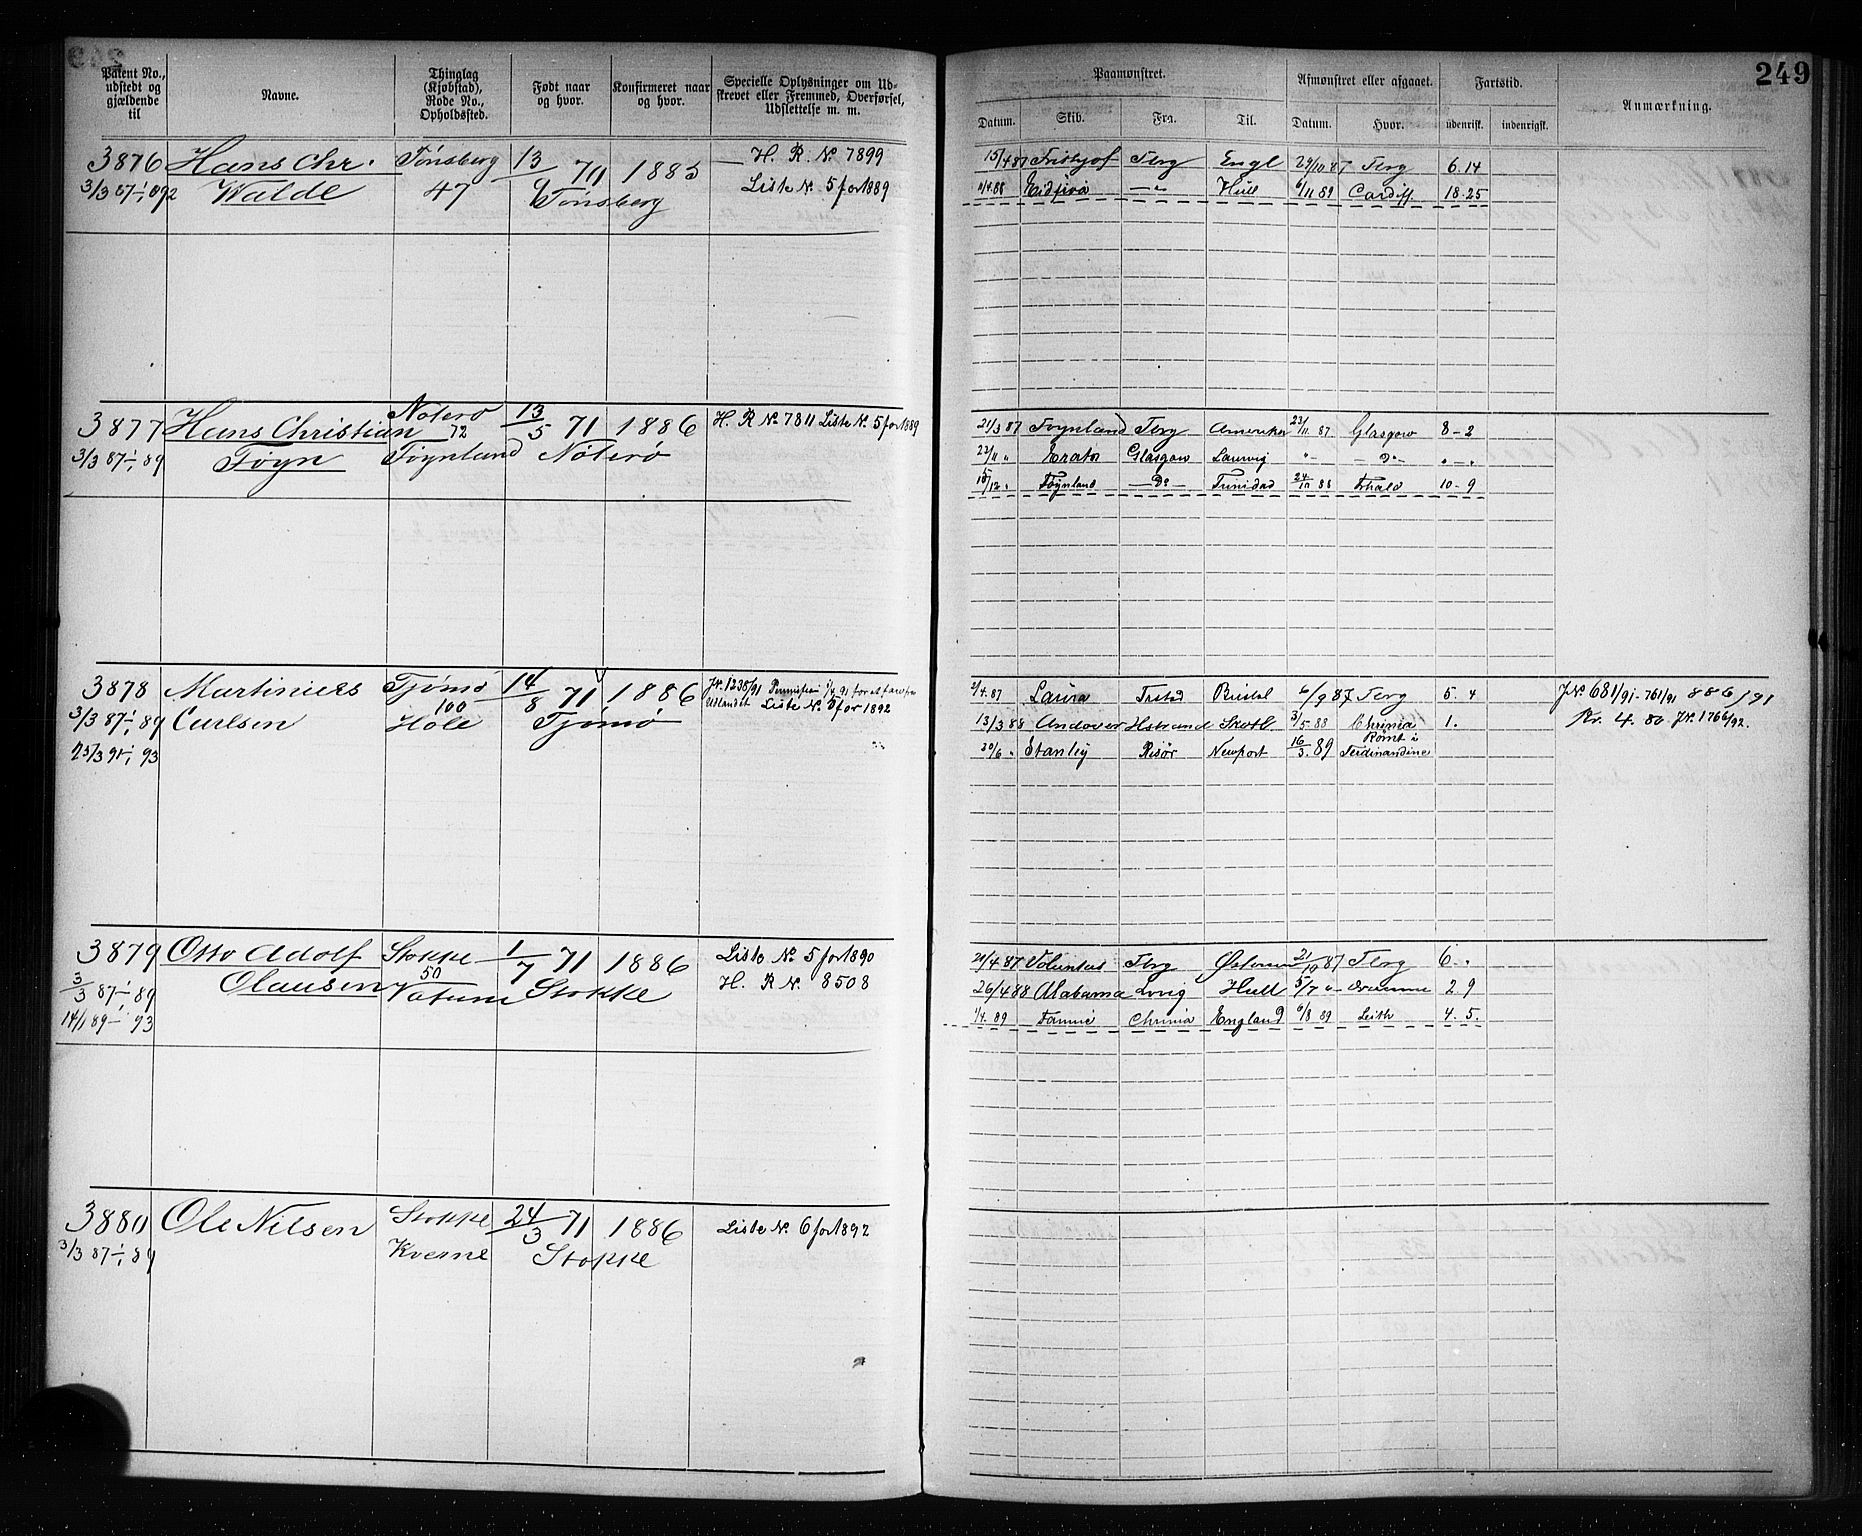 249
Patent No., udstedt og gjældende til
Navne.
Thinglag (Kjøbstad), Rode No., Opholdssted.
Født naar og hvor.
Konfirmeret naar og hvor.
Specielle Oplysninger om Udskrevet eller Fremmed, Overførsel, Udslettelse m. m.
Paamønstret.
Afmønstret eller afgaaet.
Fartstid.
Anmærkning.
Datum. Skib. Fra. Til. Datum. Hvor. udenrigsk. indenrigsk.
3876 Hans Chr. Tønsberg 13/ 70 1885 H. R. No 7899
3/3 87 Walde 47 Tønsberg Liste No. 5 for 1889
15/4 87 Frithjof Tbrg Engl 29/10 87 Tbrg 6.14
88 Hull 6/11 89 Cardiff 18-25
3877 Hans Christian Nøterø 72 13/5 71 1886 H. R No 7811 Liste No. 5 for 1889
3/3 87-1/1 89 Føyn Føynland Nøterø
21/3 87 Føynland Tbrg Amerika 23/11 87 Glasgow 8-2
22/11 " Erato Glasgow Laurvig " - Do - " - "
15/12 " Føynland - Do - Trinidad 24/10 88 Fr.hald 10-9
3878 Martinius Tjømø 100 14/8 71 1886 JN. 1238/91
3/3 87-1/1 89 Carlsen Hole Tjømø Udlandet Liste No. 5 for 1892
25/3 91-1/1 93
2/4 87 Laura Fr.stad Bristol 6/9 87 Tbrg 5.4 JNo 681/91 - 761/91 886/91
13/3 88 Andover Hstrand Skotl 3/5 88 Chrnia 1. Kr. 4. 80 JN. 1766/92.
20/6 " Stanley Risør Newport 16/3 89 Rømt i Ferdinandina
3879 Otto Adolf Stokke 50 1/7 71 1886 Liste No. 5 for 1890
3/3 87-1/1 89 Olausen Stokke H. R No. 8508
14/1 89-1/1 93
21/4 87 Tbrg 21/10 87 Tbrg 6.
26/4 88 Alabama Lvig Hull 5/7 " 2 9
1/4 89 Chrnia England 6/8 89 Leith 4. 5.
3880 Ole Nilsen Stokke 24/3 71 1886 Liste No. 6 for 1892
3/3 87-1/1 89 Kverne Stokke